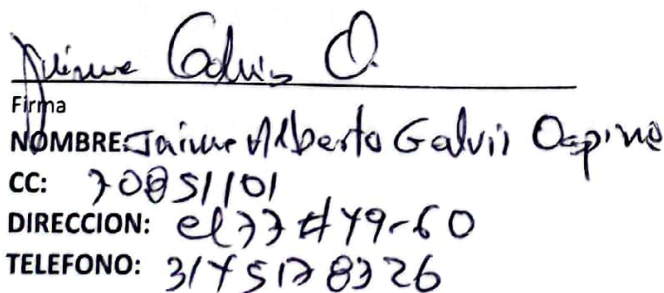 Jaime Galvis O.
Firma
NOMBRE: Jaime Alberto Galvis Ospina
CC: 70851101
DIRECCION: cl 77 # 49-60
TELEFONO: